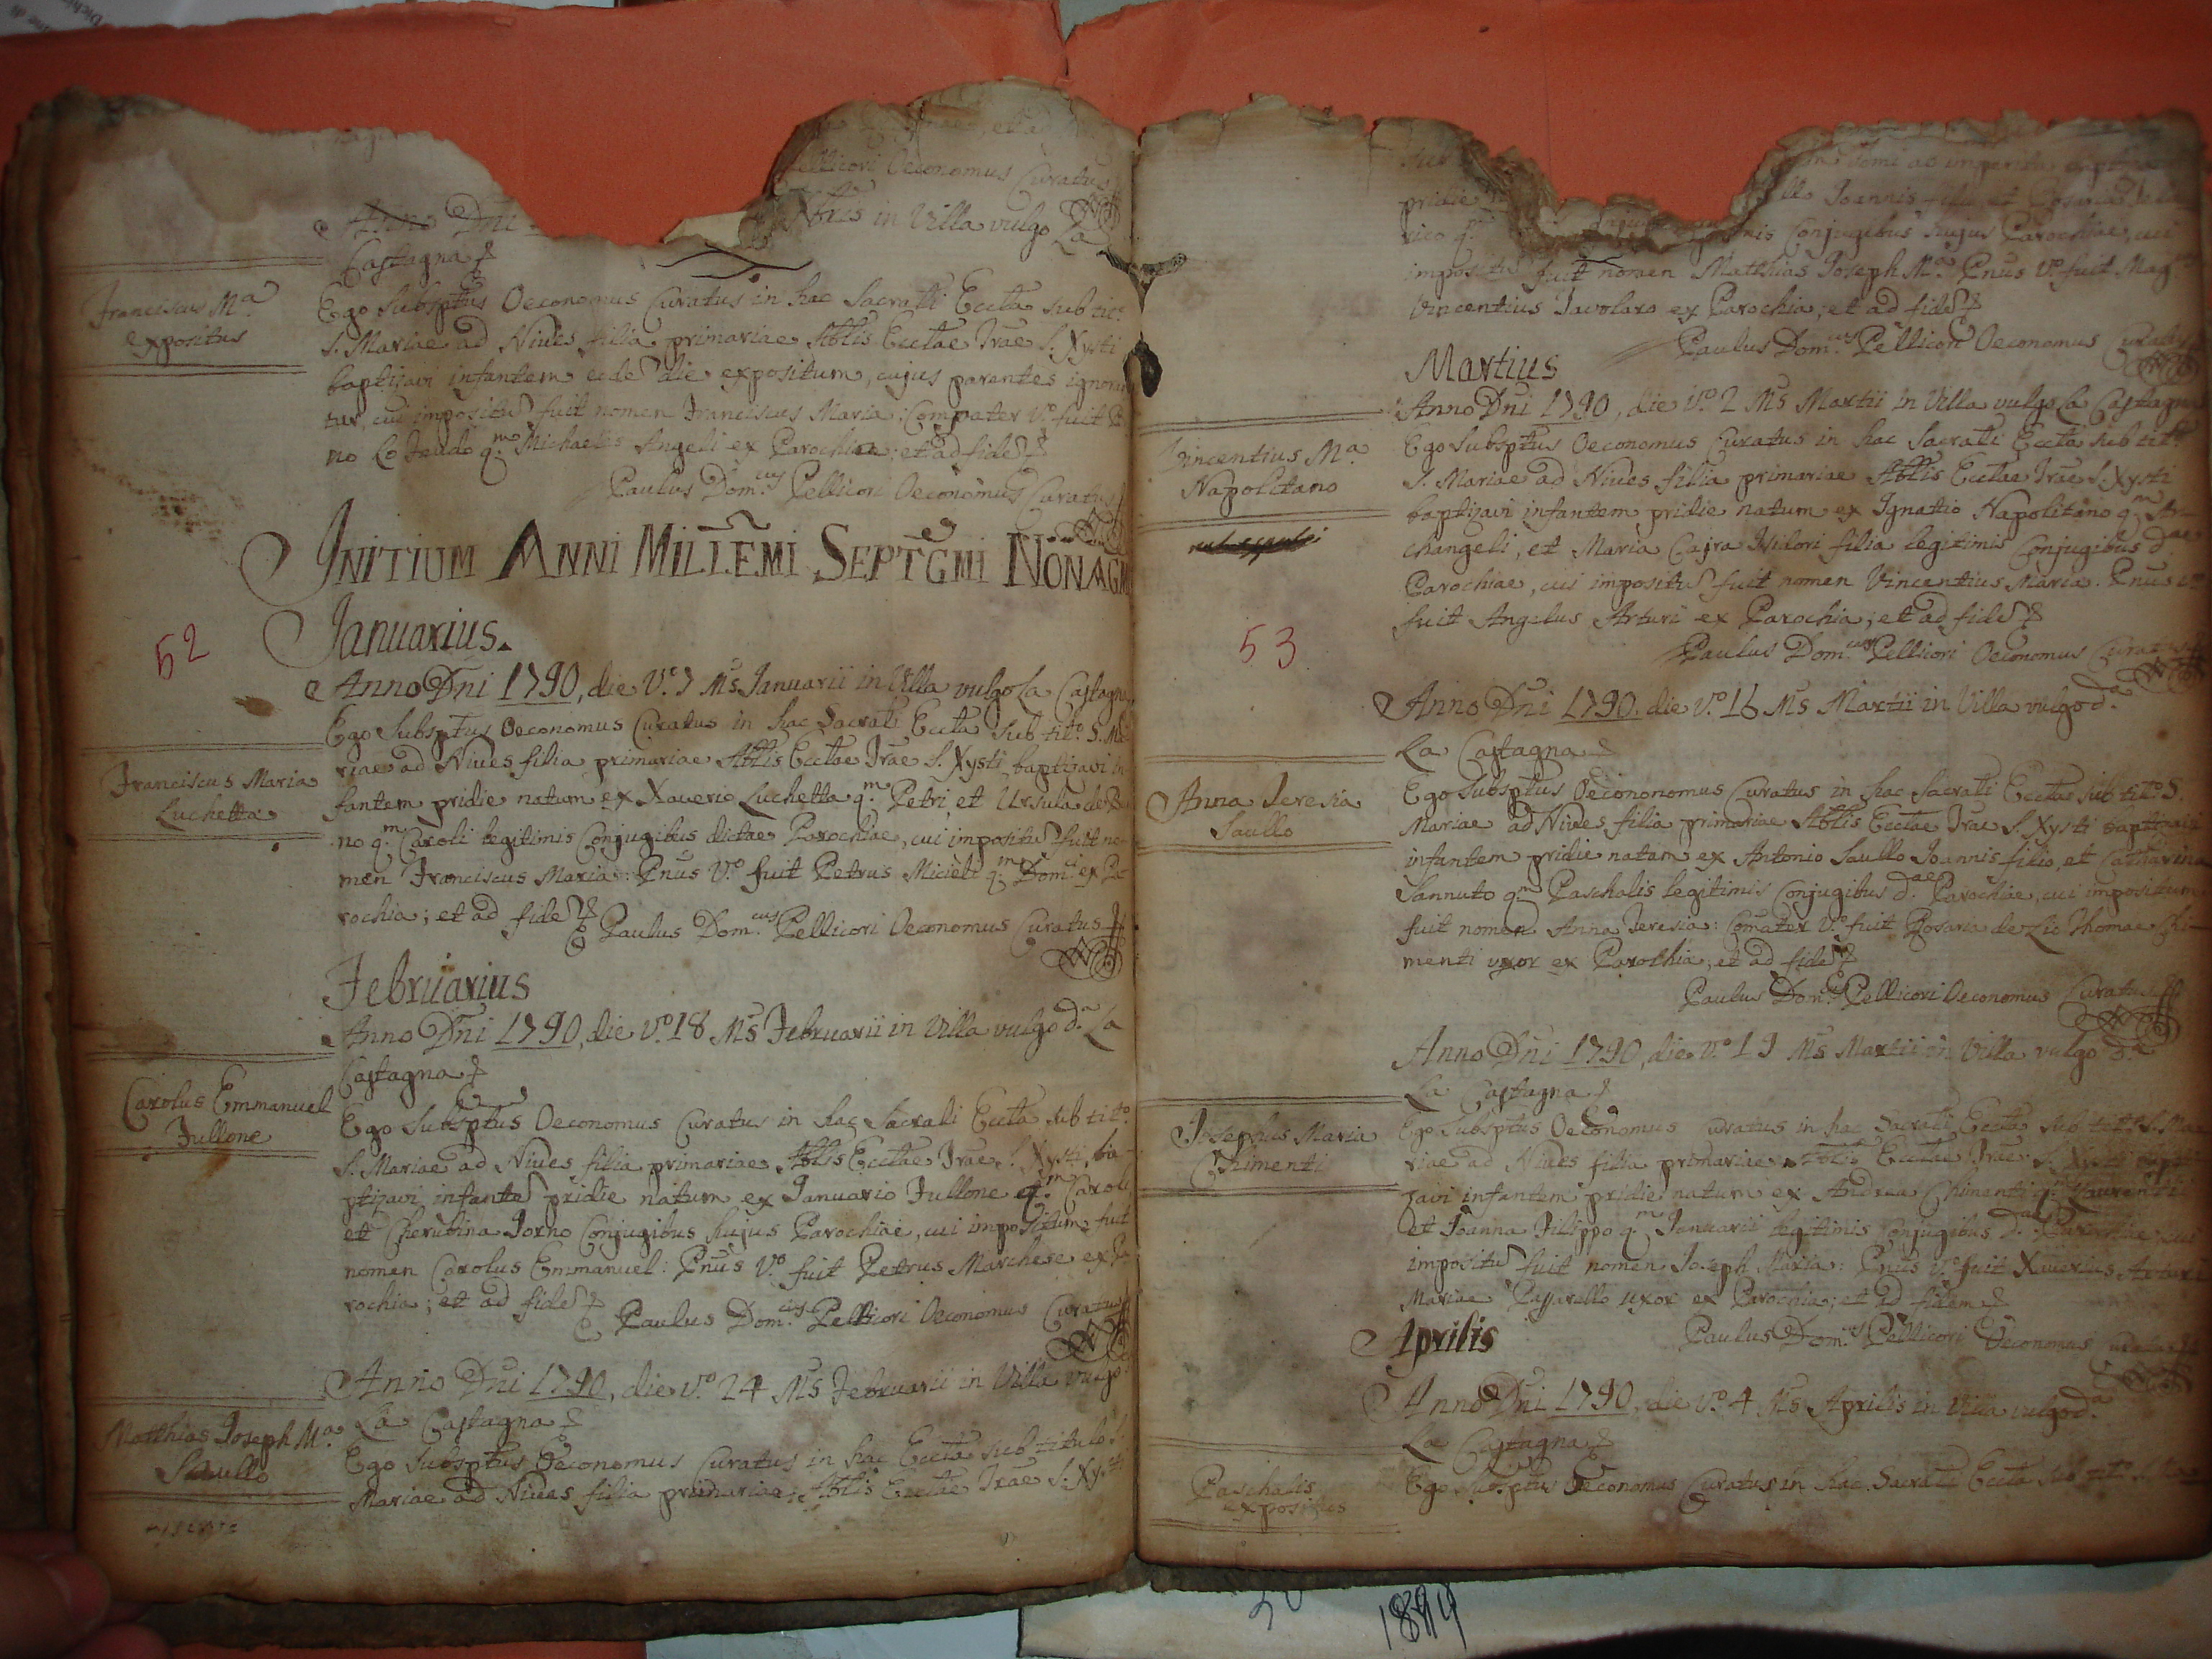 Oeconomus Curatus
Anno Dni
in Villa vulgo La
Castagna
Franciscus Mª
expositus
Ego Subsptus Oeconomus Curatus in hac Sacrati Eccta sub tit.
S. Mariae ad Nives filia primariae Abtis Ecctae Trae S. Xysti
baptizavi infantem eode die expositum, cujus parentes ignoran
tur, cui impositu fuit nomen Franciscus Maria: Compater Vº fuit
no Lo Feudo q.m Michaelis Angeli ex Parochia; et ad fide
Paulus Dom.cus Pellicori Oeconomus Curatus
INITIUM ANNI MILLEMI SEPTGMI NONAGMI
52
Januarius.
Anno Dni 1790, die Vº 7 Ms Januarii in Villa vulgo La Castagna
Franciscus Maria
Luchetta
Ego Subsptus Oeconomus Curatus in hac Sacrati Eccta sub titº S. Ma
riae ad Nives filia primariae Abtis Ecctae Trae S. Xysti baptizavi in
fantem pridie natum ex Xaverio Luchetta q.m Petri, et Ursula de
no q.m Caroli legitimis Conjugibus dictae Parochiae, cui impositu fuit no
men Franciscus Maria: Pnus Vº fuit Petrus Micieli q.m Domci ex Pa
rochia; et ad fide
Paulus Dom.cus Pellicori Oeconomus Curatus
Februarius
Anno Dni 1790, die Vº 18 Ms Februarii in Villa vulgo dª La
Castagna
Carolus Emmanuel
Fullone
Ego Subsptus Oeconomus Curatus in hac Sacrati Eccta sub titº
S. Mariae ad Nives filia primariae Abtis Ecctae Trae S. Xysti, ba
ptizavi infante pridie natum ex Januario Fullone q.m Caroli
et Cherubina Iorno Conjugibus hujus Parochiae, cui impositum fuit
nomen Carolus Emmanuel: Pnus Vº fuit Petrus Marchese ex Pa
rochia; et ad fide
Paulus Dom.cus Pellicori Oeconomus Curatus
Anno Dni 1790, die Vº 24 Ms Februarii in Villa vulgo
La Castagna
Matthias Joseph Mª
Saullo
Ego Subsptus Oeconomus Curatus in hac Eccta sub titulo S.
Mariae ad Nives filia primariae Abtis Ecctae Trae S. Xysti
pridie
Joannis filio, et Rosaria
Conjugibus hujus Parochiae, cui
impositu fuit nomen Matthias Joseph Mª. Pnus Vº fuit Mag
Vincentius Iavolaro ex Parochia, et ad fide
Paulus Dom.cus Pellicori Oeconomus Curatus
Martius
Anno Dni 1790, die Vº 2 Ms Martii in Villa vulgo La Castagna
Vincentius Mª
Napolitano
Ego Subsptus Oeconomus Curatus in hac Sacrati Eccta sub titº
S. Mariae ad Nives filia primariae Abtis Ecctae Trae S. Xysti
baptizavi infantem pridie natum ex Ignatio Napolitano q.m Ar
changeli, et Maria Cajra Isidori filia legitimis Conjugibus dae
Parochiae, cui impositu fuit nomen Vincentius Maria. Pnus Vº
fuit Angelus Arturi ex Parochia; et ad fide
53
Paulus Dom.cus Pellicori Oeconomus Curatus
Anno Dni 1790. die Vº 16 Ms Martii in Villa vulgo dª
La Castagna
Anna Teresia
Saullo
Ego Subsptus Oecononomus Curatus in hac Sacrati Eccta sub titº S.
Mariae ad Nives filia primariae Abtis Ecctae Trae S. Xysti baptizavi
infantem pridie natam ex Antonio Saullo Joannis filio, et Catharina
Sannuto q.m Paschalis legitimis Conjugibus dae Parochiae, cui impositum
fuit nomen Anna Teresia: Comater Vº fuit Rosaria de Lio Thomae Chi
menti uxor ex Parochia, et ad fide
Paulus Dom.cus Pellicori Oeconomus Curatus
Anno Dni 1790, die Vº 19 Ms Martii in Villa vulgo dª
La Castagna
Josephus Maria
Chimenti
Ego Subsptus Oeconomus Curatus in hac Sacrati Eccta sub titº S. Ma
riae ad Nives filia primariae Abtis Ecctae Trae S. Xysti bapti
zavi infantem pridie natum ex Andrea Chimenti q.m Laurentii
et Joanna Filippo q.m Januarii legitimis Conjugibus dae Parochiae, cui
impositu fuit nomen Joseph Maria: Pnus Vº fuit Xaverius Arturi
Mariae Passarello uxor ex Parochia; et ad fidem
Paulus Dom.cus Pellicori Oeconomus Curatus
Aprilis
Anno Dni 1790, die Vº 4 Ms Aprilis in Villa vulgo dª
La Castagna
Paschalis
expositus
Ego Subsptus Oeconomus Curatus in hac Sacrati Eccta sub titº